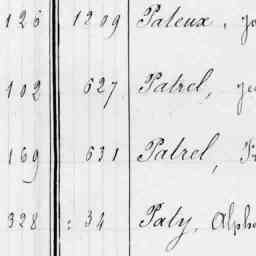 126 1209 Pateux,
102 627 Patrel,
169 631 Patrel,
328 : 34 Paty, Alph